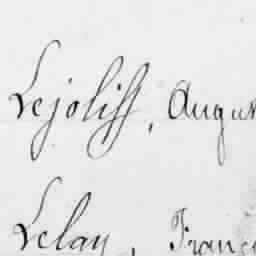 Lejoliff, Augus
Lelay, Franç